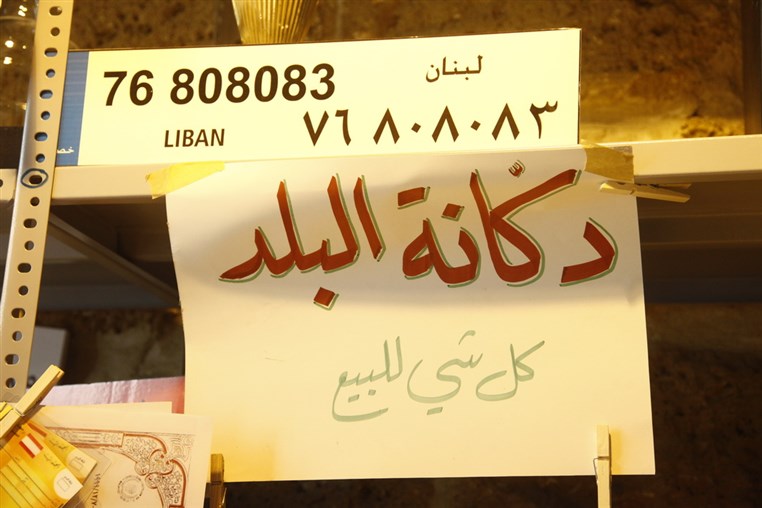 76 808083 لبنان
LIBAN ٧٦ ٨٠٨٠٨٣
دكّانة البلد
كل شي للبيع